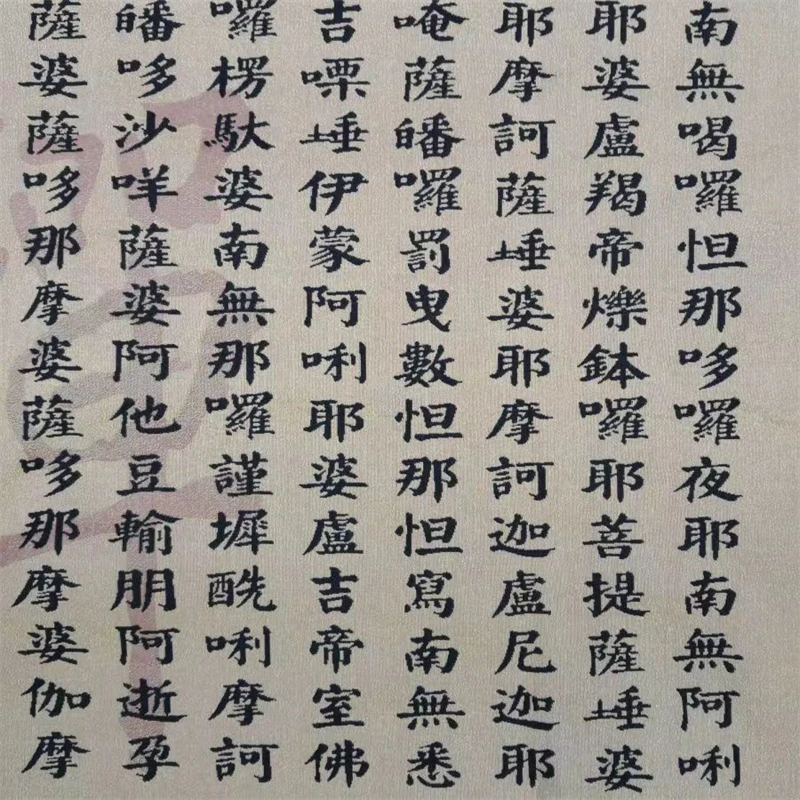 南無喝囉怛那哆囉夜耶南無阿唎
耶婆盧羯帝爍鉢囉耶菩提薩埵婆
耶摩訶薩埵婆耶摩訶迦盧尼迦耶
唵薩皤囉罰曳數怛那怛寫南無悉
吉㗚埵伊蒙阿唎耶婆盧吉帝室佛
囉楞馱婆南無那囉謹墀醯唎摩訶
皤哆沙咩薩婆阿他豆輸朋阿逝孕
薩婆薩哆那摩婆薩哆那摩婆伽摩